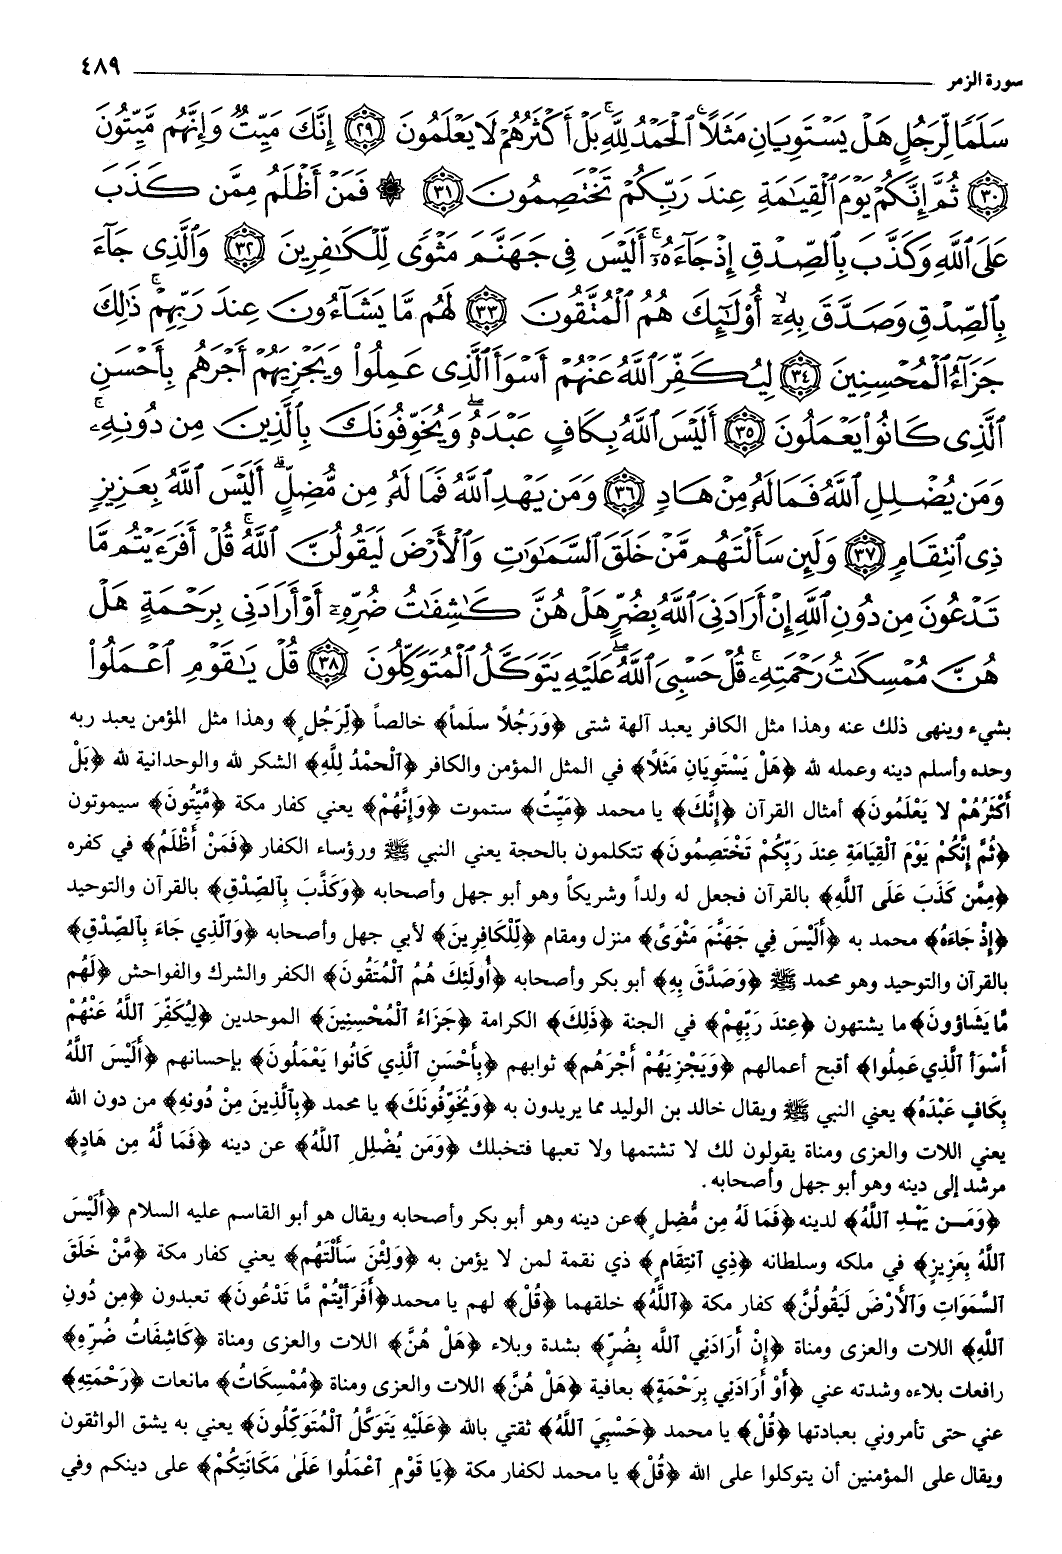 سورة الزمر ٤٨٩
سَلَمًا لِّرَجُلٍ هَلْ يَسْتَوِيَانِ مَثَلًا ۚ ٱلْحَمْدُ لِلَّهِ ۚ بَلْ أَكْثَرُهُمْ لَا يَعْلَمُونَ ٢٩ إِنَّكَ مَيِّتٌ وَإِنَّهُم مَّيِّتُونَ
٣٠ ثُمَّ إِنَّكُمْ يَوْمَ ٱلْقِيَٰمَةِ عِندَ رَبِّكُمْ تَخْتَصِمُونَ ٣١ ۞ فَمَنْ أَظْلَمُ مِمَّن كَذَبَ
عَلَى ٱللَّهِ وَكَذَّبَ بِٱلصِّدْقِ إِذْ جَآءَهُۥٓ ۚ أَلَيْسَ فِى جَهَنَّمَ مَثْوًى لِّلْكَٰفِرِينَ ٣٢ وَٱلَّذِى جَآءَ
بِٱلصِّدْقِ وَصَدَّقَ بِهِۦٓ ۙ أُو۟لَٰٓئِكَ هُمُ ٱلْمُتَّقُونَ ٣٣ لَهُم مَّا يَشَآءُونَ عِندَ رَبِّهِمْ ۚ ذَٰلِكَ
جَزَآءُ ٱلْمُحْسِنِينَ ٣٤ لِيُكَفِّرَ ٱللَّهُ عَنْهُمْ أَسْوَأَ ٱلَّذِى عَمِلُوا۟ وَيَجْزِيَهُمْ أَجْرَهُم بِأَحْسَنِ
ٱلَّذِى كَانُوا۟ يَعْمَلُونَ ٣٥ أَلَيْسَ ٱللَّهُ بِكَافٍ عَبْدَهُۥ ۖ وَيُخَوِّفُونَكَ بِٱلَّذِينَ مِن دُونِهِۦ ۚ
وَمَن يُضْلِلِ ٱللَّهُ فَمَا لَهُۥ مِنْ هَادٍ ٣٦ وَمَن يَهْدِ ٱللَّهُ فَمَا لَهُۥ مِن مُّضِلٍّ ۗ أَلَيْسَ ٱللَّهُ بِعَزِيزٍ
ذِى ٱنتِقَامٍ ٣٧ وَلَئِن سَأَلْتَهُم مَّنْ خَلَقَ ٱلسَّمَٰوَٰتِ وَٱلْأَرْضَ لَيَقُولُنَّ ٱللَّهُ ۚ قُلْ أَفَرَءَيْتُم مَّا
تَدْعُونَ مِن دُونِ ٱللَّهِ إِنْ أَرَادَنِىَ ٱللَّهُ بِضُرٍّ هَلْ هُنَّ كَٰشِفَٰتُ ضُرِّهِۦٓ أَوْ أَرَادَنِى بِرَحْمَةٍ هَلْ
هُنَّ مُمْسِكَٰتُ رَحْمَتِهِۦ ۚ قُلْ حَسْبِىَ ٱللَّهُ ۖ عَلَيْهِ يَتَوَكَّلُ ٱلْمُتَوَكِّلُونَ ٣٨ قُلْ يَٰقَوْمِ ٱعْمَلُوا۟
بشيء وينهى ذلك عنه وهذا مثل الكافر يعبد آلهة شتى ﴿وَرَجُلاً سلَماً﴾ خالصاً ﴿لِّرَجُلٍ﴾ وهذا مثل المؤمن يعبد ربه
وحده وأسلم دينه وعمله لله ﴿هَلْ يَسْتَوِيَانِ مَثَلاً﴾ في المثل المؤمن والكافر ﴿ٱلْحَمْدُ لِلَّهِ﴾ الشكر لله والوحدانية لله ﴿بَلْ
أَكْثَرُهُمْ لا يَعْلَمُونَ﴾ أمثال القرآن ﴿إِنَّكَ﴾ يا محمد ﴿مَيِّتٌ﴾ ستموت ﴿وَإِنَّهُمْ﴾ يعني كفار مكة ﴿مَّيِّتُونَ﴾ سيموتون
﴿ثُمَّ إِنَّكُمْ يَوْمَ ٱلْقِيَامَةِ عِندَ رَبِّكُمْ تَخْتَصِمُونَ﴾ تتكلمون بالحجة يعني النبي ﷺ ورؤساء الكفار ﴿فَمَنْ أَظْلَمُ﴾ في كفره
﴿مِمَّن كَذَبَ عَلَى ٱللَّهِ﴾ بالقرآن فجعل له ولداً وشريكاً وهو أبو جهل وأصحابه ﴿وَكَذَّبَ بِٱلصِّدْقِ﴾ بالقرآن والتوحيد
﴿إِذْ جَاءَهُ﴾ محمد به ﴿أَلَيْسَ فِي جَهَنَّمَ مَثْوًى﴾ منزل ومقام ﴿لِّلْكَافِرِينَ﴾ لأبي جهل وأصحابه ﴿وَٱلَّذِي جَاءَ بِٱلصِّدْقِ﴾
بالقرآن والتوحيد وهو محمد ﷺ ﴿وَصَدَّقَ بِهِ﴾ أبو بكر وأصحابه ﴿أُولَئِكَ هُمُ ٱلْمُتَّقُونَ﴾ الكفر والشرك والفواحش ﴿لَهُم
مَّا يَشَاؤونَ﴾ ما يشتهون ﴿عِندَ رَبِّهِمْ﴾ في الجنة ﴿ذَلِكَ﴾ الكرامة ﴿جَزَاءُ ٱلْمُحْسِنِينَ﴾ الموحدين ﴿لِيُكَفِّرَ ٱللَّهُ عَنْهُمْ
أَسْوَأَ ٱلَّذِي عَمِلُوا﴾ أقبح أعمالهم ﴿وَيَجْزِيَهُمْ أَجْرَهُم﴾ ثوابهم ﴿بِأَحْسَنِ ٱلَّذِي كَانُوا يَعْمَلُونَ﴾ بإحسانهم ﴿أَلَيْسَ ٱللَّهُ
بِكَافٍ عَبْدَهُ﴾ يعني النبي ﷺ ويقال خالد بن الوليد مما يريدون به ﴿وَيُخَوِّفُونَكَ﴾ يا محمد ﴿بِٱلَّذِينَ مِنْ دُونِهِ﴾ من دون الله
يعني اللات والعزى ومناة يقولون لك لا تشتمها ولا تعبها فتخبلك ﴿وَمَن يُضْلِلِ ٱللَّهُ﴾ عن دينه ﴿فَمَا لَهُ مِن هَادٍ﴾
مرشد إلى دينه وهو أبو جهل وأصحابه.
﴿وَمَن يَهْدِ ٱللَّهُ﴾ لدينه ﴿فَمَا لَهُ مِن مُّضِلٍ﴾ عن دينه وهو أبو بكر وأصحابه ويقال هو أبو القاسم عليه السلام ﴿أَلَيْسَ
ٱللَّهُ بِعَزِيزٍ﴾ في ملكه وسلطانه ﴿ذِي ٱنتِقَامٍ﴾ ذي نقمة لمن لا يؤمن به ﴿وَلَئِنْ سَأَلْتَهُم﴾ يعني كفار مكة ﴿مَّنْ خَلَقَ
ٱلسَّمَوَاتِ وَٱلأَرْضَ لَيَقُولُنَّ﴾ كفار مكة ﴿ٱللَّهُ﴾ خلقهما ﴿قُلْ﴾ لهم يا محمد ﴿أَفَرَأَيْتُمْ مَّا تَدْعُونَ﴾ تعبدون ﴿مِن دُونِ
ٱللَّهِ﴾ اللات والعزى ومناة ﴿إِنْ أَرَادَنِي ٱللَّه بِضُرٍّ﴾ بشدة وبلاء ﴿هَلْ هُنَّ﴾ اللات والعزى ومناة ﴿كَاشِفَاتُ ضُرِّهِ﴾
رافعات بلاءه وشدته عني ﴿أَوْ أَرَادَنِي بِرَحْمَةٍ﴾ بعافية ﴿هَلْ هُنَّ﴾ اللات والعزى ومناة ﴿مُمْسِكَاتُ﴾ مانعات ﴿رَحْمَتِهِ﴾
عني حتى تأمروني بعبادتها ﴿قُلْ﴾ يا محمد ﴿حَسْبِيَ ٱللَّهُ﴾ ثقتي بالله ﴿عَلَيْهِ يَتَوَكَّلُ ٱلْمُتَوَكِّلُونَ﴾ يعني به يشق الواثقون
ويقال على المؤمنين أن يتوكلوا على الله ﴿قُلْ﴾ يا محمد لكفار مكة ﴿يَا قَوْمِ ٱعْمَلُوا عَلَىٰ مَكَانَتِكُمْ﴾ على دينكم وفي